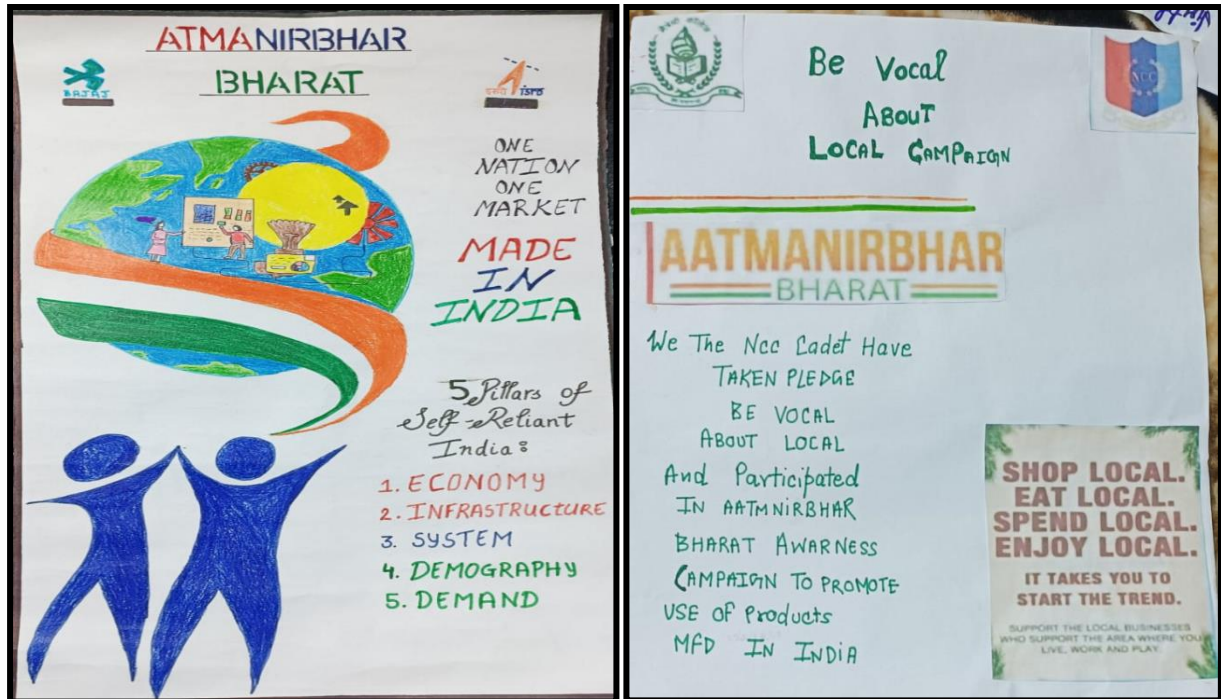 ATMANIRBHAR
BHARAT
BAJAJ
इसरो isro
ONE
NATION
ONE
MARKET
MADE
IN
INDIA
5 Pillars of
Self-Reliant
India:
1. ECONOMY
2. INFRASTRUCTURE
3. SYSTEM
4. DEMOGRAPHY
5. DEMAND
Be Vocal
ABOUT
LOCAL CAMPAIGN
NCC
AATMANIRBHAR
BHARAT
We The Ncc Cadet Have
TAKEN PLEDGE
BE VOCAL
ABOUT LOCAL
And Participated
IN AATMNIRBHAR
BHARAT AWARNESS
CAMPAIGN TO PROMOTE
USE OF Products
MFD IN INDIA
SHOP LOCAL.
EAT LOCAL.
SPEND LOCAL.
ENJOY LOCAL.
IT TAKES YOU TO
START THE TREND.
SUPPORT THE LOCAL BUSINESSES
WHO SUPPORT THE AREA WHERE YOU
LIVE, WORK AND PLAY.